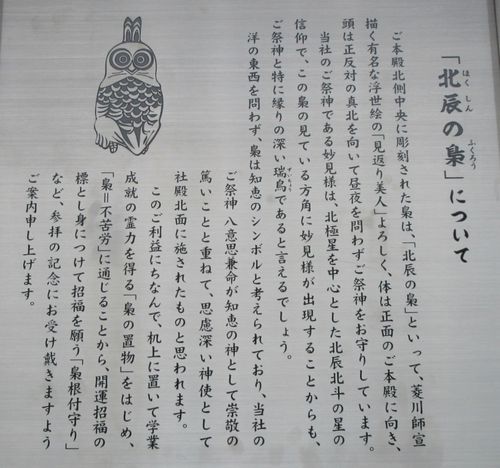 「北辰の梟」について
ほくしん
ふくろう
ご本殿北側中央に彫刻された梟は、「北辰の梟」といって、菱川師宣
描く有名な浮世絵の「見返り美人」よろしく、体は正面のご本殿に向き、
頭は正反対の真北を向いて昼夜を問わずご祭神をお守りしています。
当社のご祭神である妙見様は、北極星を中心とした北辰北斗の星の
信仰で、この梟の見ている方角に妙見様が出現することからも、
ご祭神と特に縁りの深い瑞鳥であると言えるでしょう。
ずいちょう
洋の東西を問わず、梟は知恵のシンボルと考えられており、当社の
ご祭神 八意思兼命が知恵の神として崇敬の
篤いことと重ねて、思慮深い神使として
社殿北面に施されたものと思われます。
このご利益にちなんで、机上に置いて学業
成就の霊力を得る「梟の置物」をはじめ、
「梟＝不苦労」に通じることから、開運招福の
標とし身につけて招福を願う「梟根付守り」
など、参拝の記念にお受け戴きますよう
ご案内申し上げます。